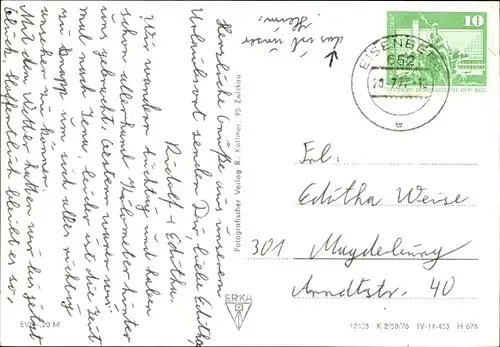 das ist unser
Heim,
Herzliche Grüße aus unserem
Urlaubsort senden Dir, liebe Editha,
Rudolf + Editha.
Wir wandern tüchtig und haben
schon allerhand Kilometer hinter
uns gebracht. Gestern waren wir
mal nach Jena, leider ist die Zeit
zu knapp um sich alles richtig
ansehen zu können.
Mit dem Wetter hatten wir bis jetzt
Glück. Hoffentlich bleibt es so.
EVP -,20 M
Fotografischer Verlag R. Kallmer, 95 Zwickau
ERKA
10
EISENBE
652
Frl.
Editha Weise
301 Magdeburg
Arndtstr. 40
K 2/50/76 IV-14-453 H 676